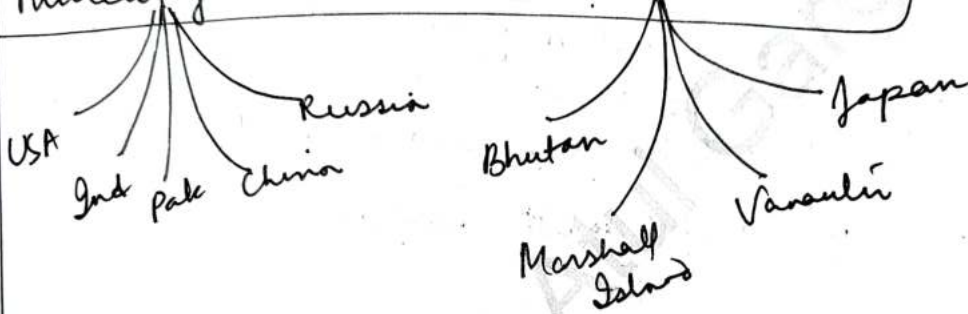 USA
Ind
Pak
China
Russia
Bhutan
Marshall
Island
Japan